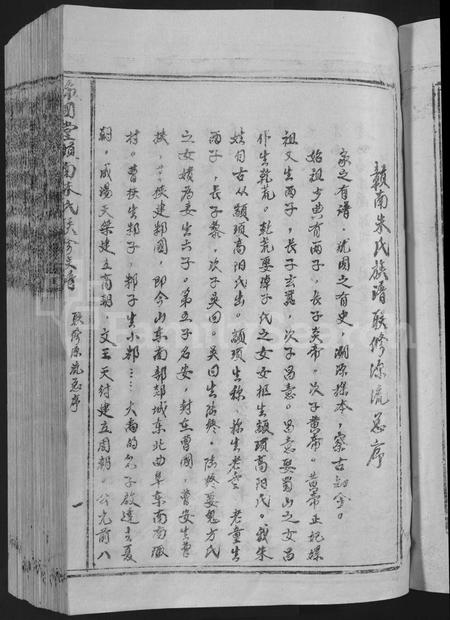 赣南朱氏族谱联修源流总序
家之有谱，犹国之有史，溯源探本，察古知今。
始祖少典有两子，长子炎帝。次子黄帝。黄帝正妃嫘
祖又生两子，长子玄嚣，次子昌意。昌意娶蜀山之女昌
仆生乾荒。乾荒娶璋子氏之女女枢生颛顼高阳氏。我朱
姓自古从颛顼高阳氏出。颛顼生称，称生老童 老童生
两子，长子黎，次子吴回。吴回生陆终。陆终娶鬼方氏
之女嬇为妻生六子。第五子名安，封在曹国，曹安生
挟，挟建邾国，即今山东南部邹城东北曲阜东南南陬
村。曹挟生邾子 邾子生小邾⋯ 大禹的儿子启建立夏
朝，成汤灭桀建立商朝，文王灭纣建立周朝。公元前八
南朱氏联修族谱
联修源流总序
一
FamilySearch